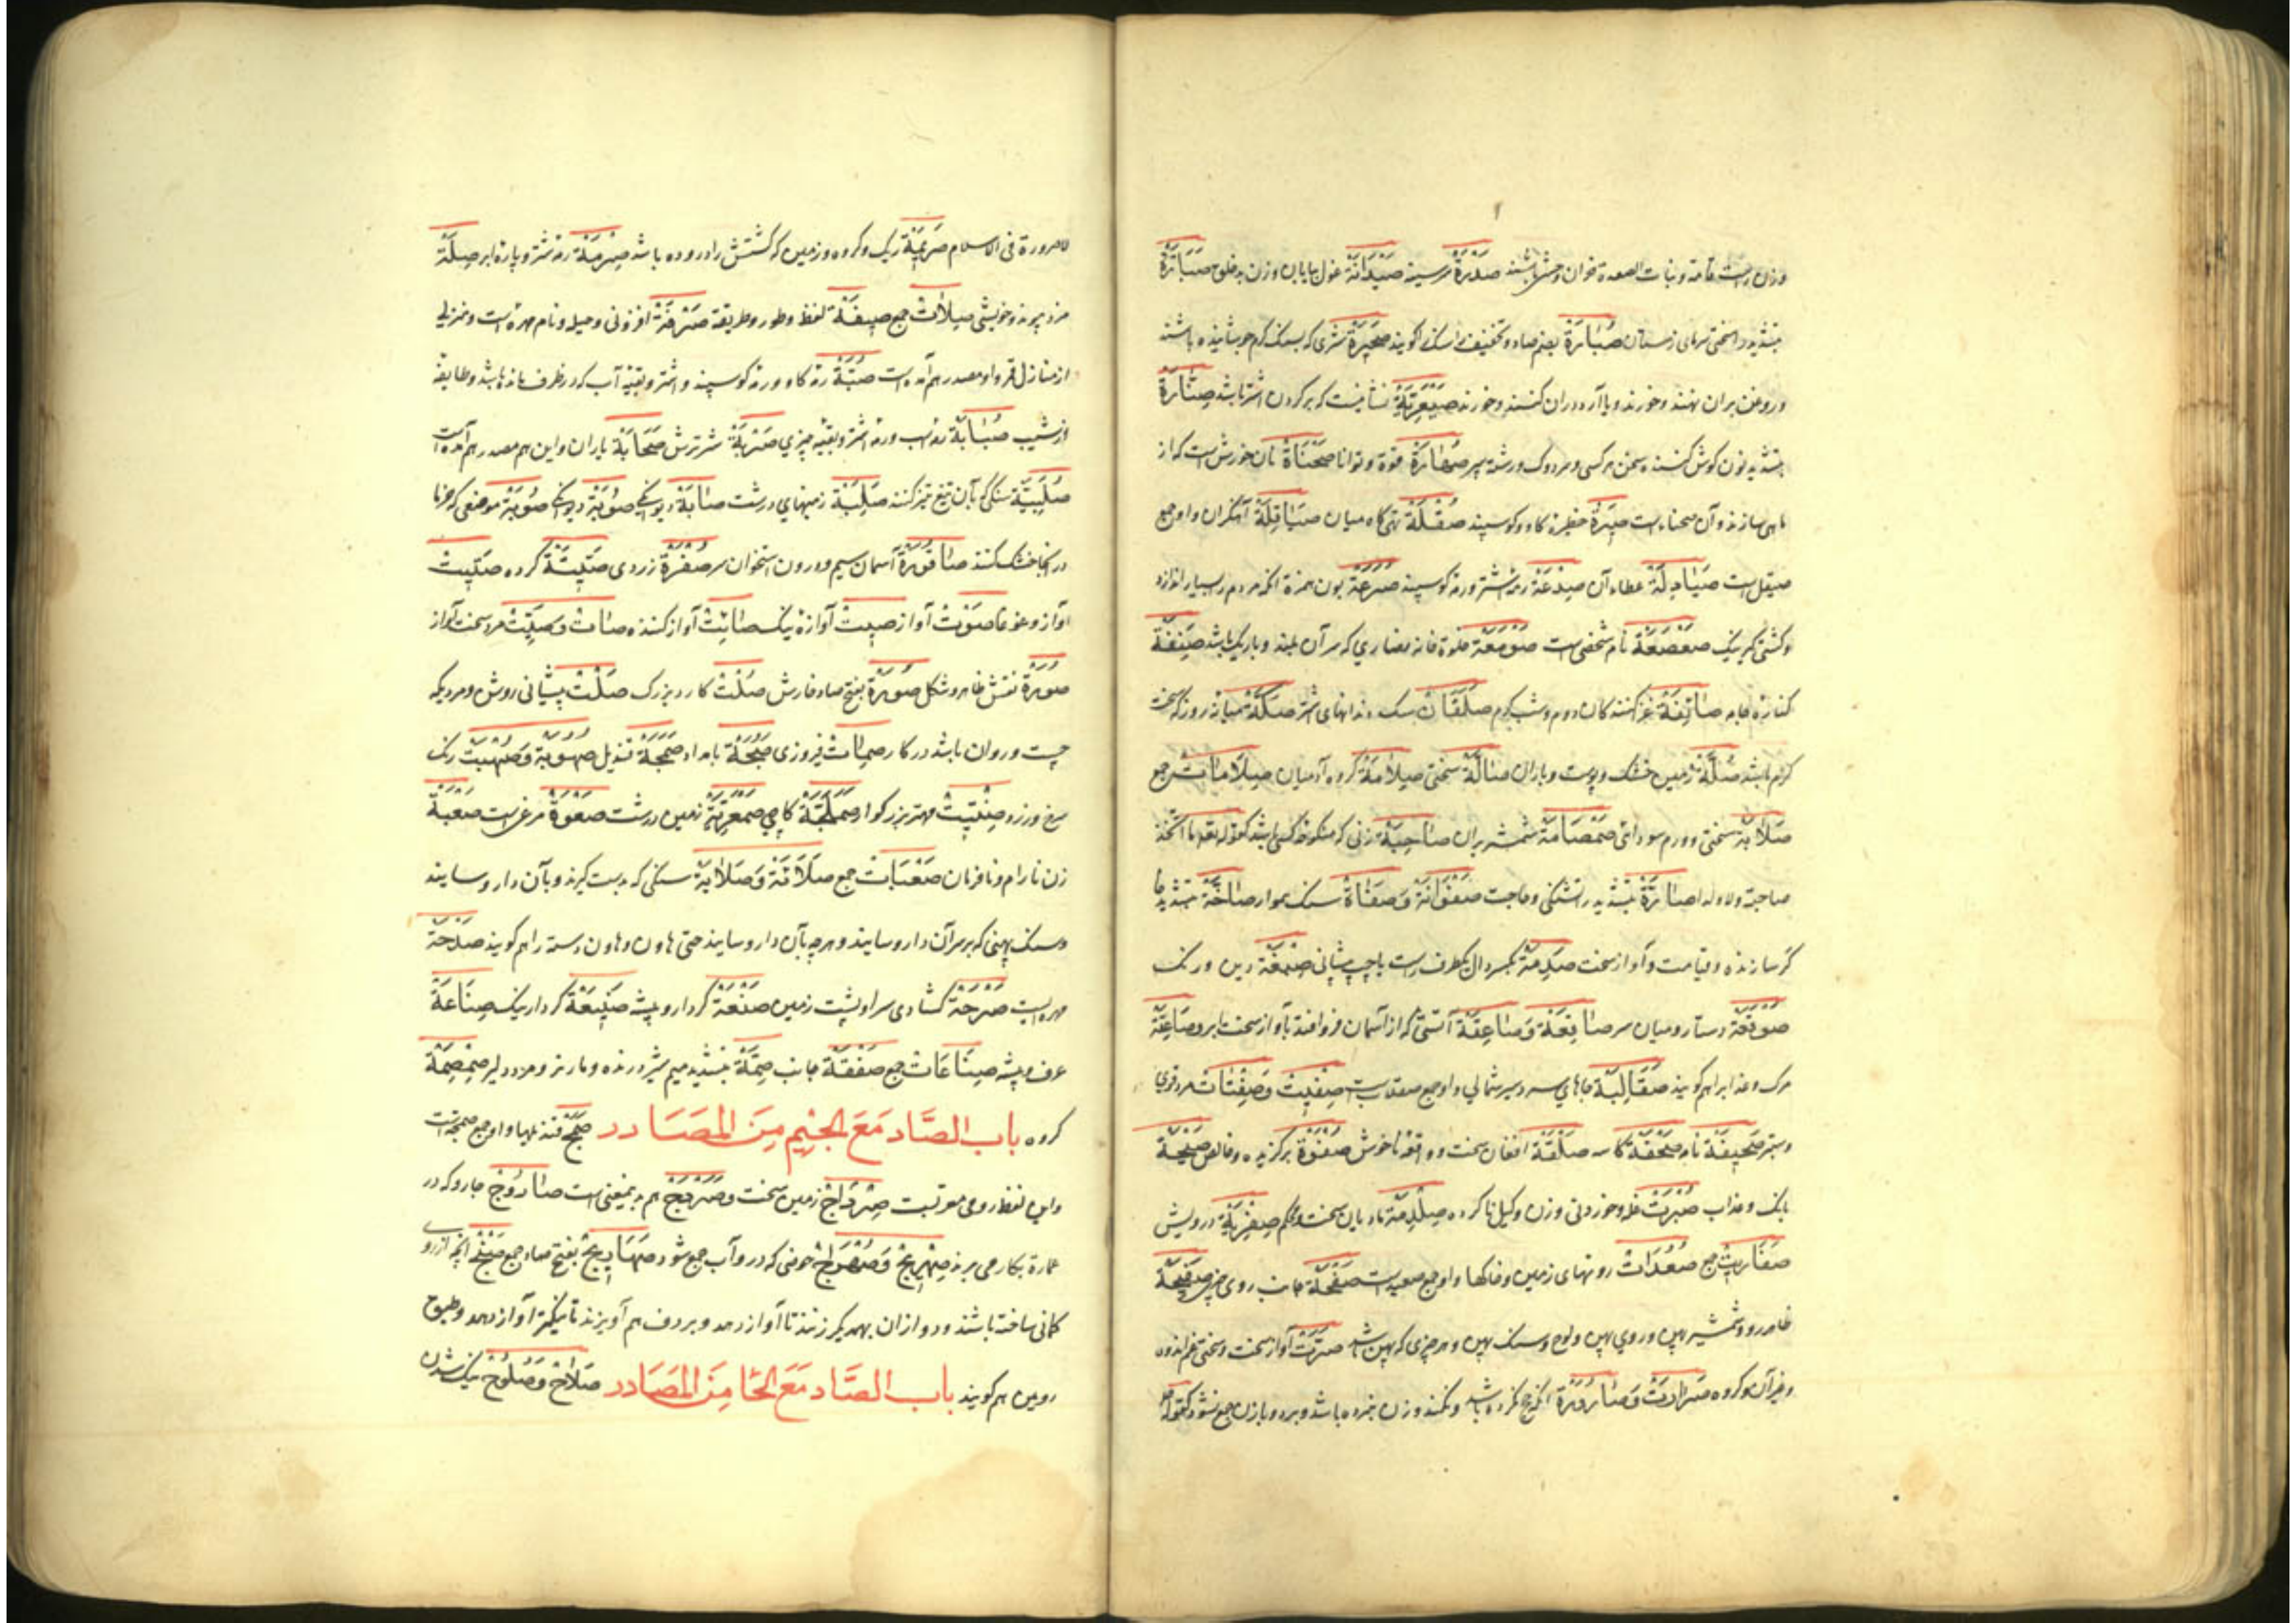 وزن راست قامة و بنات الصعدة خوان وحش باشند صُدْرَةٌ سر سینه صَیْدَانَةٌ غول بیابان و زن بدخلق صَبَارَّةٌ
بتشدید را سختی سرمای زمستان صُبَارَةٌ بضم صاد و تخفیف را سنك را کویند صَحِیْرَةٌ شیری که بسنك کرم جوشانیده باشند
و روغن بران نهند و خورند و یا آرد دران کنند و خورند صَیْعَرِیَّةٌ نشانیست که بر کردن اشتر باشد صِنَّارَةٌ
بتشدید نون کوش کننده سخن هر کسی و سر دوك و رشته سپر قوة و توانا صِحْنَاةٌ نان خورش است که از
ماهی سازند و آن صحناء است صِیْرَةٌ حظیرة کاو و کوسپند صُقْلَةٌ تهی کاه میان صَیَاقِلَةٌ آهنکران و او جمع
صیقل است صَیَادِلَةٌ عطاء آن صِدْعَةٌ رمه شتر و رمه کوسپند صُرَعَةٌ بون همزة آنکه مردم را بسیار اندازد
و کشتی کیر نیك صَعْصَعَةٌ نام شخصی است صَوْمَعَةٌ خلوة خانه نصاری که سر آن بلند و باریك باشد صَنِفَةٌ
کنارهٔ جامه صَائِفَةٌ غزا کنندکان دوم و شب کرم صَلَقَاتٌ سك دندانهای اشتر صَكَّةٌ میانه روز که سخت
کرم باشد صَلَّةٌ زمین خشك و پوست و باران صَالَّةٌ سختی صِلَامَةٌ کروه آدمیان صِلَامَاتٌ جمع
صَلَابَةٌ سختی و ورم سودائی صَمْصَامَةٌ شمشیر بران صَاحِبَةٌ زنی که منکوحهٔ کسی باشد کقوله تعالی ما اتخذ
صاحبة ولا ولدا صَارَّةٌ بتشدید را تشنکی و حاجت صَفْوَانَةٌ وَصَفَاةٌ سنك هموار صَاخَّةٌ بتشدید خا
کر سازنده و قیامت و آواز سخت صَدِمَةٌ بکسر دال یکطرف راست یا چپ پیشانی صِبْغَةٌ دین و رنك
صَوْقَعَةٌ دستار و میان سر صَاقِعَةٌ وَصَاعِقَةٌ آتشی که از آسمان فرو افتد با آواز سخت ابر و صَاعِقَةٌ
مرك و عذاب را هم کویند صَقَالِبَةٌ جاهای سردسیر شمالی و او جمع صقلاب است صِفْتِیْتٌ وَصِفْتَاتٌ مرد قوی
و ستبر صَحِیْفَةٌ نامه صَحْفَةٌ کاسه صَلْقَةٌ افغان سخت و واقعه ناخوش صَفْوَةٌ برکزیده و خالص صَیْحَةٌ
بانك و عذاب صُبْرَتٌ غله خوردنی و زن و کیل ناکرده صِلْدِمَةٌ مادیان سخت و محکم درویش
جمع صُعُدَاتٌ رویهای زمین و خاکها و او جمع صعید است صَفْحَةٌ جانب روی چیزی صَفِیْحَةٌ
ظاهر رو و شمشیر پهن و روی پهن و لوح و سنك پهن و هر چیزی که پهن باشد صَرَّتٌ آواز سخت و سختی غم اندوه
و غیر آن و کروه صَرَارَتٌ وَصَارُوْرَةٌ آنکه حج نکرده باشد و نکند و زن نبرده باشد و مرد و با زن جمع نشود کقوله
لاصرورة فی الاسلام صَرِیْمَةٌ ریك و کروه و زمین که کشتش را دروده باشد صِرْمَةٌ رمه شتر و پارهٔ ابر صِلَةٌ
مزد پیوند و خویشی صِلَاتٌ جمع صِیْغَةٌ لفظ و طور و طریقه صَرْفَةٌ افزونی و حیله و نام مهره است و منزلی
از منازل قمر و او مصدر هم آمده است صُبَّةٌ رمه کاو و رمه کوسپند و اشتر و بقیه آب که در ظرف مانده باشد و طایفه
از شب صُبَابَةٌ رمه اسب و رمه اشتر و بقیه چیزی صَرْبَةٌ شیر ترش صَحَابَةٌ یاران و این هم مصدر هم آمده است
صُلَّبِیَّةٌ سنکی که بآن تیغ تیز کنند صَلِبَةٌ زمینهای درشت صَابَةٌ دیوانکی صُوْبَةٌ موضعی که خرما
در آنجا خشك کنند صَاقُوْرَةٌ آسمان سیم و درون استخوان سر صُفْرَةٌ زردی صَتِیْتَةٌ کروه صَتِیْتٌ
آواز و غوغا صَوْتٌ آواز صِیْتٌ آوازهٔ نیك صَائِتٌ آواز کننده صَاتٌ وَصَیِّتٌ مرد سخت آواز
صُوْرَةٌ نقش ظاهر و شکل صَوْرَةٌ بفتح صاد خارش صُلْتٌ کارد بزرك صَلْتٌ پیشانی روش و مردیکه
چست و روان باشد در کار فیروزی صُبْحَةٌ بامداد صَمَجَةٌ قندیل صُهُوْبَةٌ وَصُهْبَتٌ رنك
سرخ و زرد صِنْتِیْتٌ مهتر بزرکوار کاچی صَمْعَرِیَّةٌ زمین درشت صَعْوَةٌ مرغی است صَعْبَةٌ
زن نارام و نافرمان صَعْبَاتٌ جمع وَصَلَایَةٌ سنکی که بدست کیرند و بآن دارو سایند
و سنك پهنی که بر سر آن دارو سایند و هر چه بآن دارو سایند حتی هاون و هاون دسته را هم کویند صَدْحَةٌ
مهره است صَرْحَةٌ کشادی سرا و پشت زمین صَنْعَةٌ کردار و پیشه صَنِیْعَةٌ کردار نیك صِنَاعَةٌ
حرف و پیشه صِنَاعَاتٌ جمع صَفْقَةٌ جانب صِمَّةٌ بتشدید میم شیر درنده و مار نر و مرد دلیر صِمْصِمَةٌ
کروه باب الصَّاد مَعَ الجِیْم مِنَ المَصَادر صَمَجٌ قندیلها و او جمع صمجة است
و این لفظ رومی معربست زمین سخت و هم بدینمعنی است صَارُوْجٌ جاروکه در
عمارة بکار می برند صِهْرِیْجٌ وَصُهَارِجٌ حوضی که در و آب جمع شود صَهَارِیْجٌ بفتح صاد جمع صَنْجٌ آنچه از روی
کمانی ساخته باشند و دو از ان بهمدیکر زنند تا آواز دهد و بر دف هم آویزند تا نیکتر آواز دهد و طبق
رویین هم کویند باب الصَّاد مَعَ الحَا مِنَ المَصَادر صَلَاحٌ وَصُلُوْحٌ نیك شدن